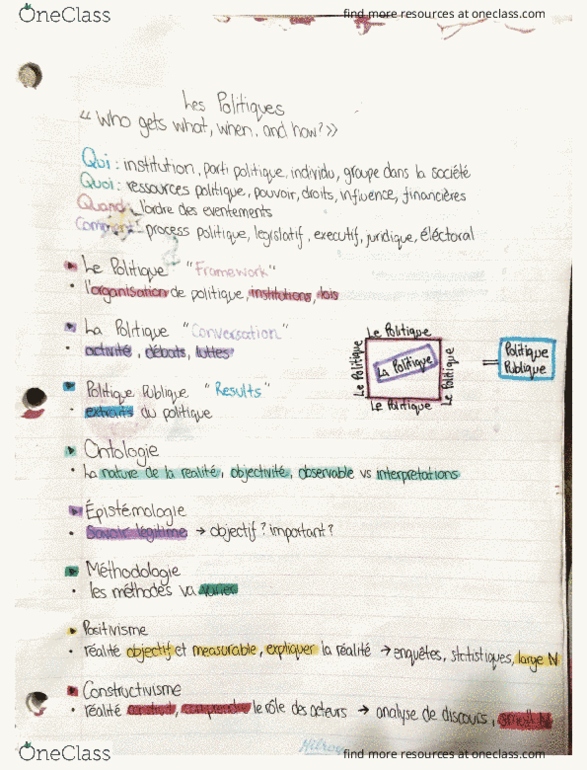 OneClass
find more resources at oneclass.com
Les Politiques
« Who gets what, when, and how? »
Qui : institution, parti politique, individu, groupe dans la société
Quoi : ressources politique, pouvoir, droits, influence, financières
Quand : l'ordre des eventements
Comment : process politique, legislatif, executif, juridique, éléctoral
Le Politique "Framework"
• l'organisation de politique, institutions, lois
La Politique "Conversation"
• activité, débats, luttes
Le Politique
Le Politique
La Politique
Le Politique
Le Politique
=
Politique
Publique
Politique Publique "Results"
• extraits du politique
Ontologie
• La nature de la réalité, objectivité, observable vs interpretations
Épistémologie
• Savoir légitime → objectif? important?
Méthodologie
• les méthodes va varier
Positivisme
• réalité objectif et measurable, expliquer la réalité → enquêtes, statistiques, large N
Constructivisme
• réalité construit, comprendre le rôle des acteurs → analyse de discours, small N
OneClass
find more resources at oneclass.com